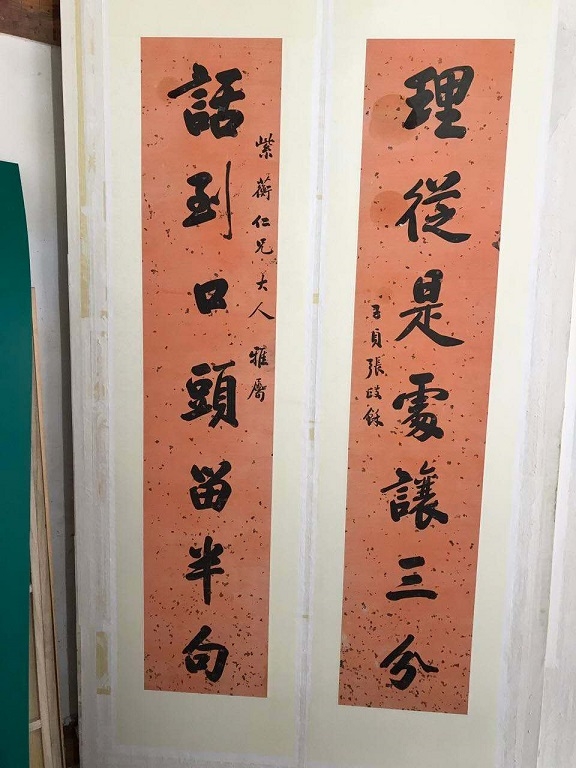 話到口頭留半句
紫蘅仁兄大人 雅屬
理從是處讓三分
子貞張